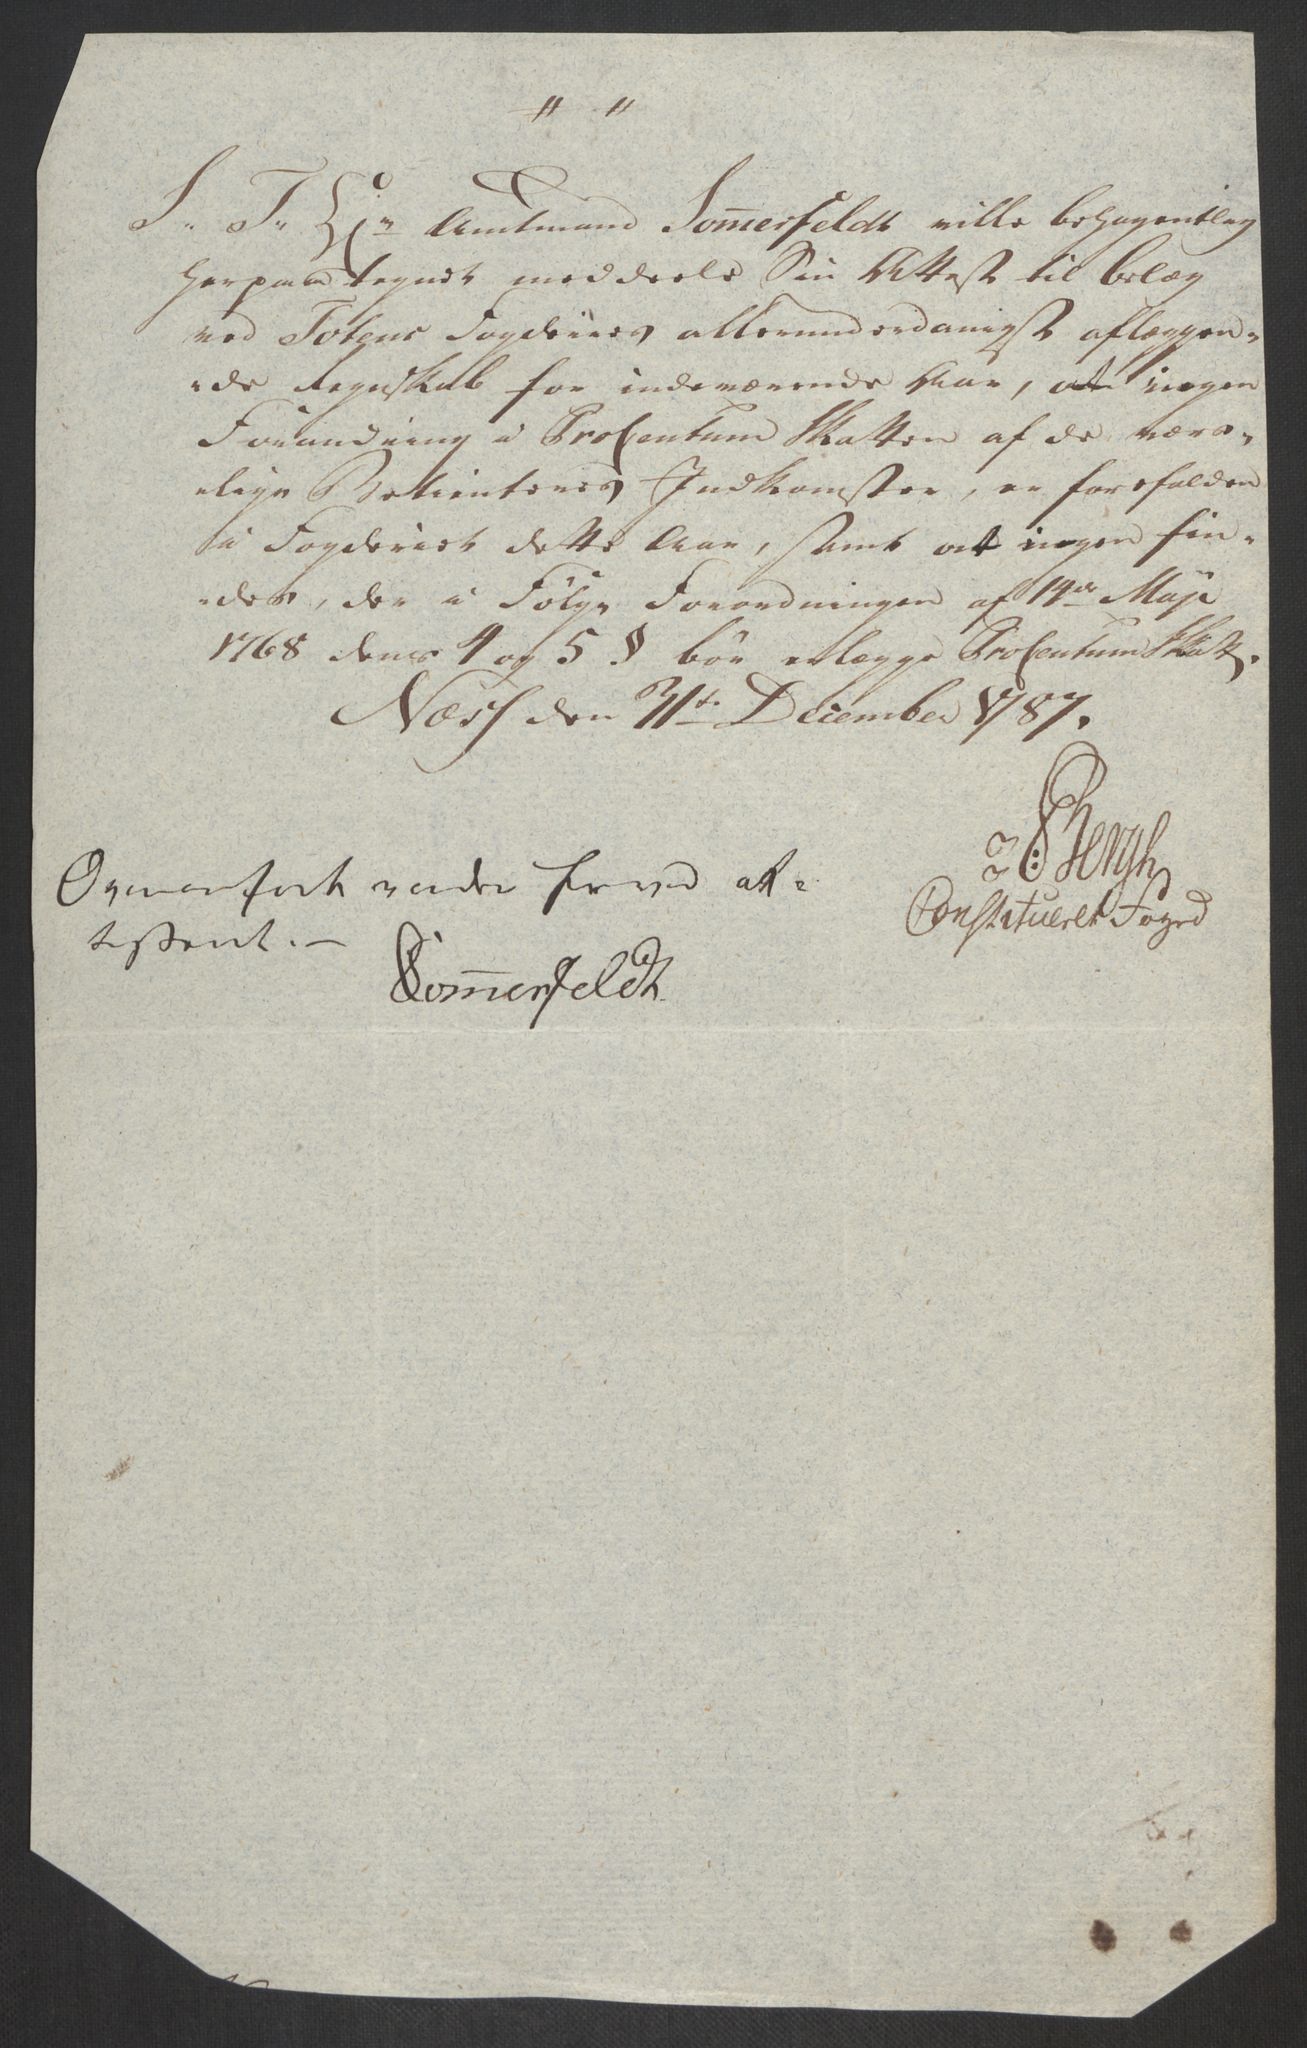 S. T. Hr. Amtmand Sommerfeldt ville behagentlig
herpaa tegnet meddeele Sin Attest til belæg
ved Totens Fogderies allerunderdanigst aflæggen-
-de Regnskab for indeværende Aar, at ingen
Forandring i Procentum Skatten af de værs-
-lige Betienteres Indkomster, er forefalden
i Fogderiet dette Aar, samt at ingen fin-
-des, der i Følge Forordningen af 14de Maji
1768 dens 4 og 5 § bör erlægge Procentum Skatt.
Næss den 31te December 1787.
Bergh
Constitueret Foged
Ovenanførte verder herved at-
testeret.
Sommerfeldt